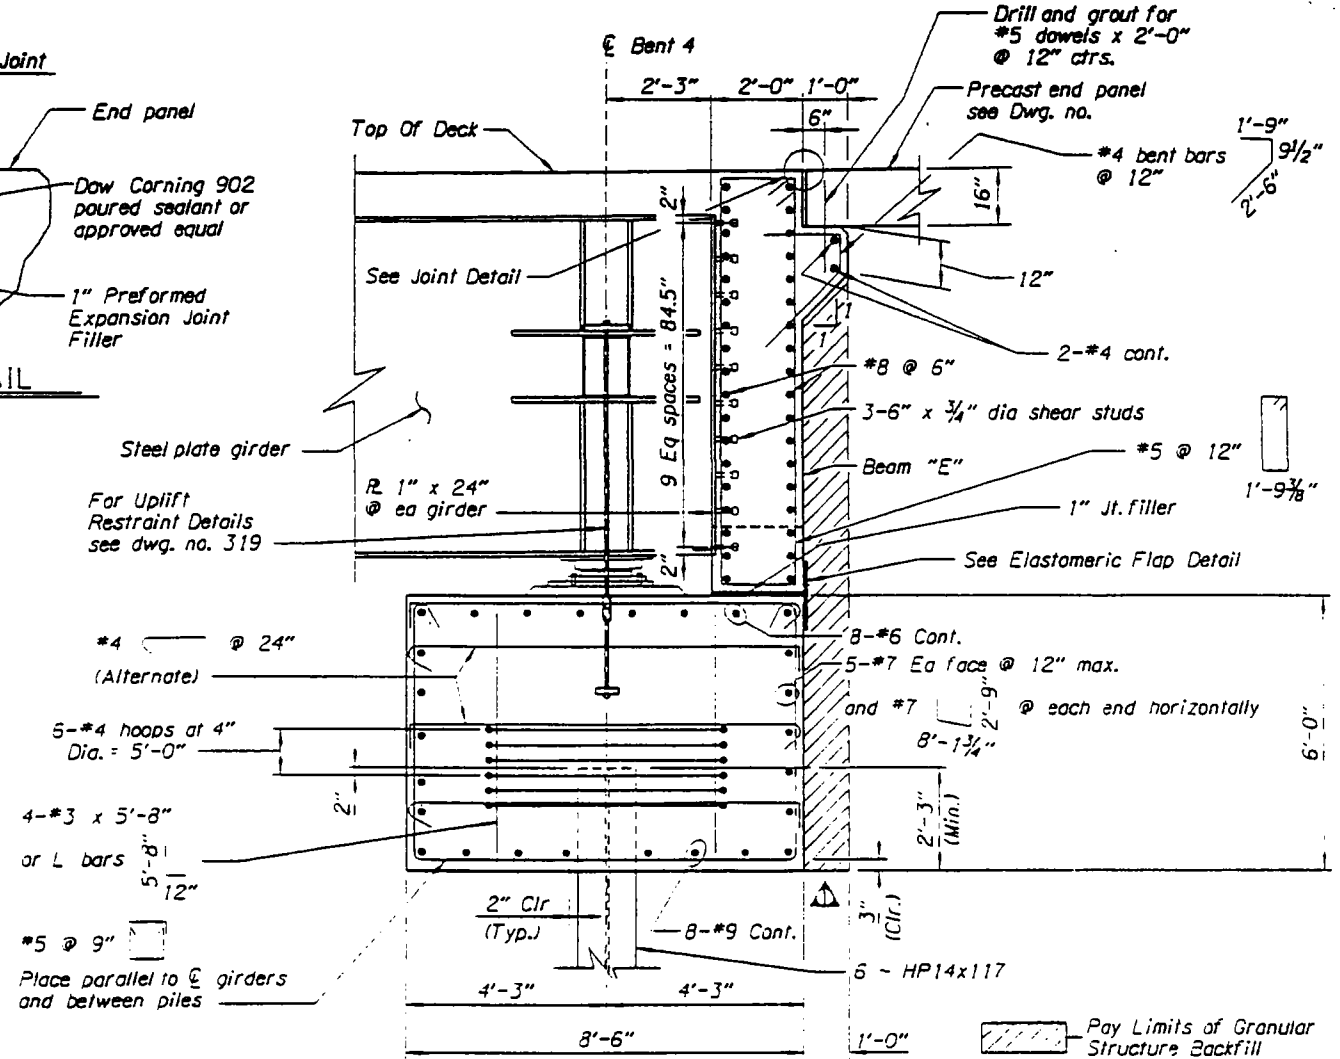 Joint
End panel
Dow Corning 902
poured sealant or
approved equal
1" Preformed
Expansion Joint
Filler
℄ Bent 4
2'-3"
2'-0"
1'-0"
6"
Top Of Deck
Drill and grout for
#5 dowels x 2'-0"
@ 12" ctrs.
Precast end panel
see Dwg. no.
#4 bent bars
@ 12"
1'-9"
9½"
2'-6"
16"
12"
2"
See Joint Detail
9 Eq spaces = 84.5"
1
1
2-#4 cont.
#8 @ 6"
3-6" x ¾" dia shear studs
#5 @ 12"
1'-9⅜"
Beam "E"
1" Jt. filler
See Elastomeric Flap Detail
Steel plate girder
For Uplift
Restraint Details
see dwg. no. 319
℄ 1" x 24"
@ ea girder
2"
#4
@ 24"
(Alternate)
8-#6 Cont.
5-#7 Ea face @ 12" max.
and #7
2'-9"
8'-1¾"
@ each end horizontally
6-#4 hoops at 4"
Dia. = 5'-0"
2"
4-#3 x 5'-8"
or L bars
5'-8"
12"
2'-3"
(Min.)
6'-0"
3"
(Clr.)
#5 @ 9"
Place parallel to ℄ girders
and between piles
2" Clr
(Typ.)
8-#9 Cont.
6 - HP14x117
4'-3"
4'-3"
8'-6"
1'-0"
Pay Limits of Granular
Structure Backfill